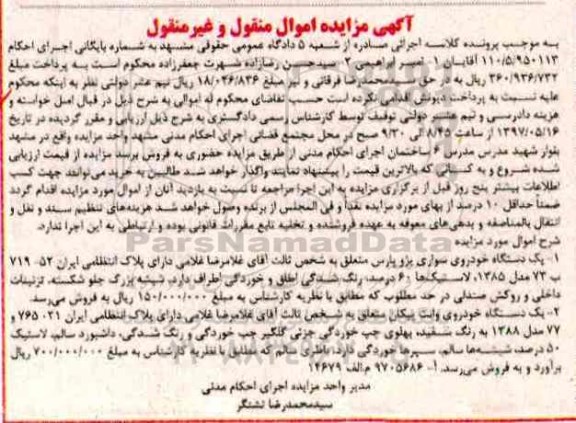 آگهی مزایده اموال منقول و غیرمنقول
به موجب پرونده کلاسه اجرائی صادره از شعبه ۵ دادگاه عمومی حقوقی مشهد به شماره بایگانی اجرای احکام
۱۱۰/۵/۹۵۰۱۱۳ آقایان ۱- نصیر ابراهیمی ۲- سیدحسن رضازاده شهرت جعفرزاده محکوم است به پرداخت مبلغ
۳۶۰/۹۳۶/۷۳۲ ریال به در حق سیدمحمدرضا فرقانی و نیز مبلغ ۱۸/۰۴۶/۸۳۶ ریال نیم عشر دولتی نظر به اینکه محکوم
علیه نسبت به پرداخت دیونش اقدامی نکرده است حسب تقاضای محکوم له اموالی به شرح ذیل در قبال اصل خواسته و
هزینه دادرسی و نیم عشر دولتی توقیف توسط کارشناس رسمی دادگستری به شرح ذیل ارزیابی و مقرر گردیده در تاریخ
۱۳۹۷/۰۵/۱۶ از ساعت ۸/۴۵ الی ۹/۳۰ صبح در محل مجتمع قضائی اجرای احکام مدنی مشهد واحد مزایده واقع در مشهد
بلوار شهید مدرس مدرس ۴ ساختمان اجرای احکام مدنی از طریق مزایده حضوری به فروش برسد مزایده از قیمت ارزیابی
شده شروع و به کسانی که بالاترین قیمت را پیشنهاد نمایند واگذار خواهد شد طالبین به خرید می‌توانند جهت کسب
اطلاعات بیشتر پنج روز قبل از برگزاری مزایده به این اجرا مراجعه تا نسبت به بازدید آنان از اموال مورد مزایده اقدام گردد
ضمناً حداقل ۱۰ درصد از بهای مورد مزایده نقداً و فی المجلس از برنده وصول خواهد شد هزینه‌های تنظیم سند و نقل و
انتقال بالمناصفه و بدهی‌های معوقه به عهده فروشنده و تخلیه تابع مقررات قانونی بوده و ارتباطی به این اجرا ندارد.
شرح اموال مورد مزایده
۱- یک دستگاه خودروی سواری پژو پارس متعلق به شخص ثالث آقای غلامرضا غلامی دارای پلاک انتظامی ایران ۵۲- ۷۱۹
ب ۷۳ مدل ۱۳۸۵، لاستیک‌ها ۶۰ درصد، رنگ شدگی اطاق و خوردگی اطراف دارد، شیشه بزرگ جلو شکسته، تزئینات
داخلی و روکش صندلی در حد مطلوب که مطابق با نظریه کارشناس به مبلغ ۱۵۰/۰۰۰/۰۰۰ ریال به فروش می‌رسد.
۲- یک دستگاه خودروی وانت پیکان متعلق به شخص ثالث آقای غلامرضا غلامی دارای پلاک انتظامی ایران ۳۱-۷۶۵ و
۷۷ مدل ۱۳۸۸ به رنگ سفید، پهلوی چپ خوردگی جزئی گلگیر چپ خوردگی و رنگ شدگی، داشبورد سالم، لاستیک
۵۰ درصد، شیشه‌ها سالم، سپرها خوردگی دارد، باطری سالم که مطابق با نظریه کارشناس به مبلغ ۷۰۰/۰۰۰/۰۰۰ ریال
برآورد و به فروش می‌رسد. آ- ۹۷۰۵۶۸۶ م.الف ۱۴۶۷۹
مدیر واحد مزایده اجرای احکام مدنی
سیدمحمدرضا تشتگر
ParsNamadData